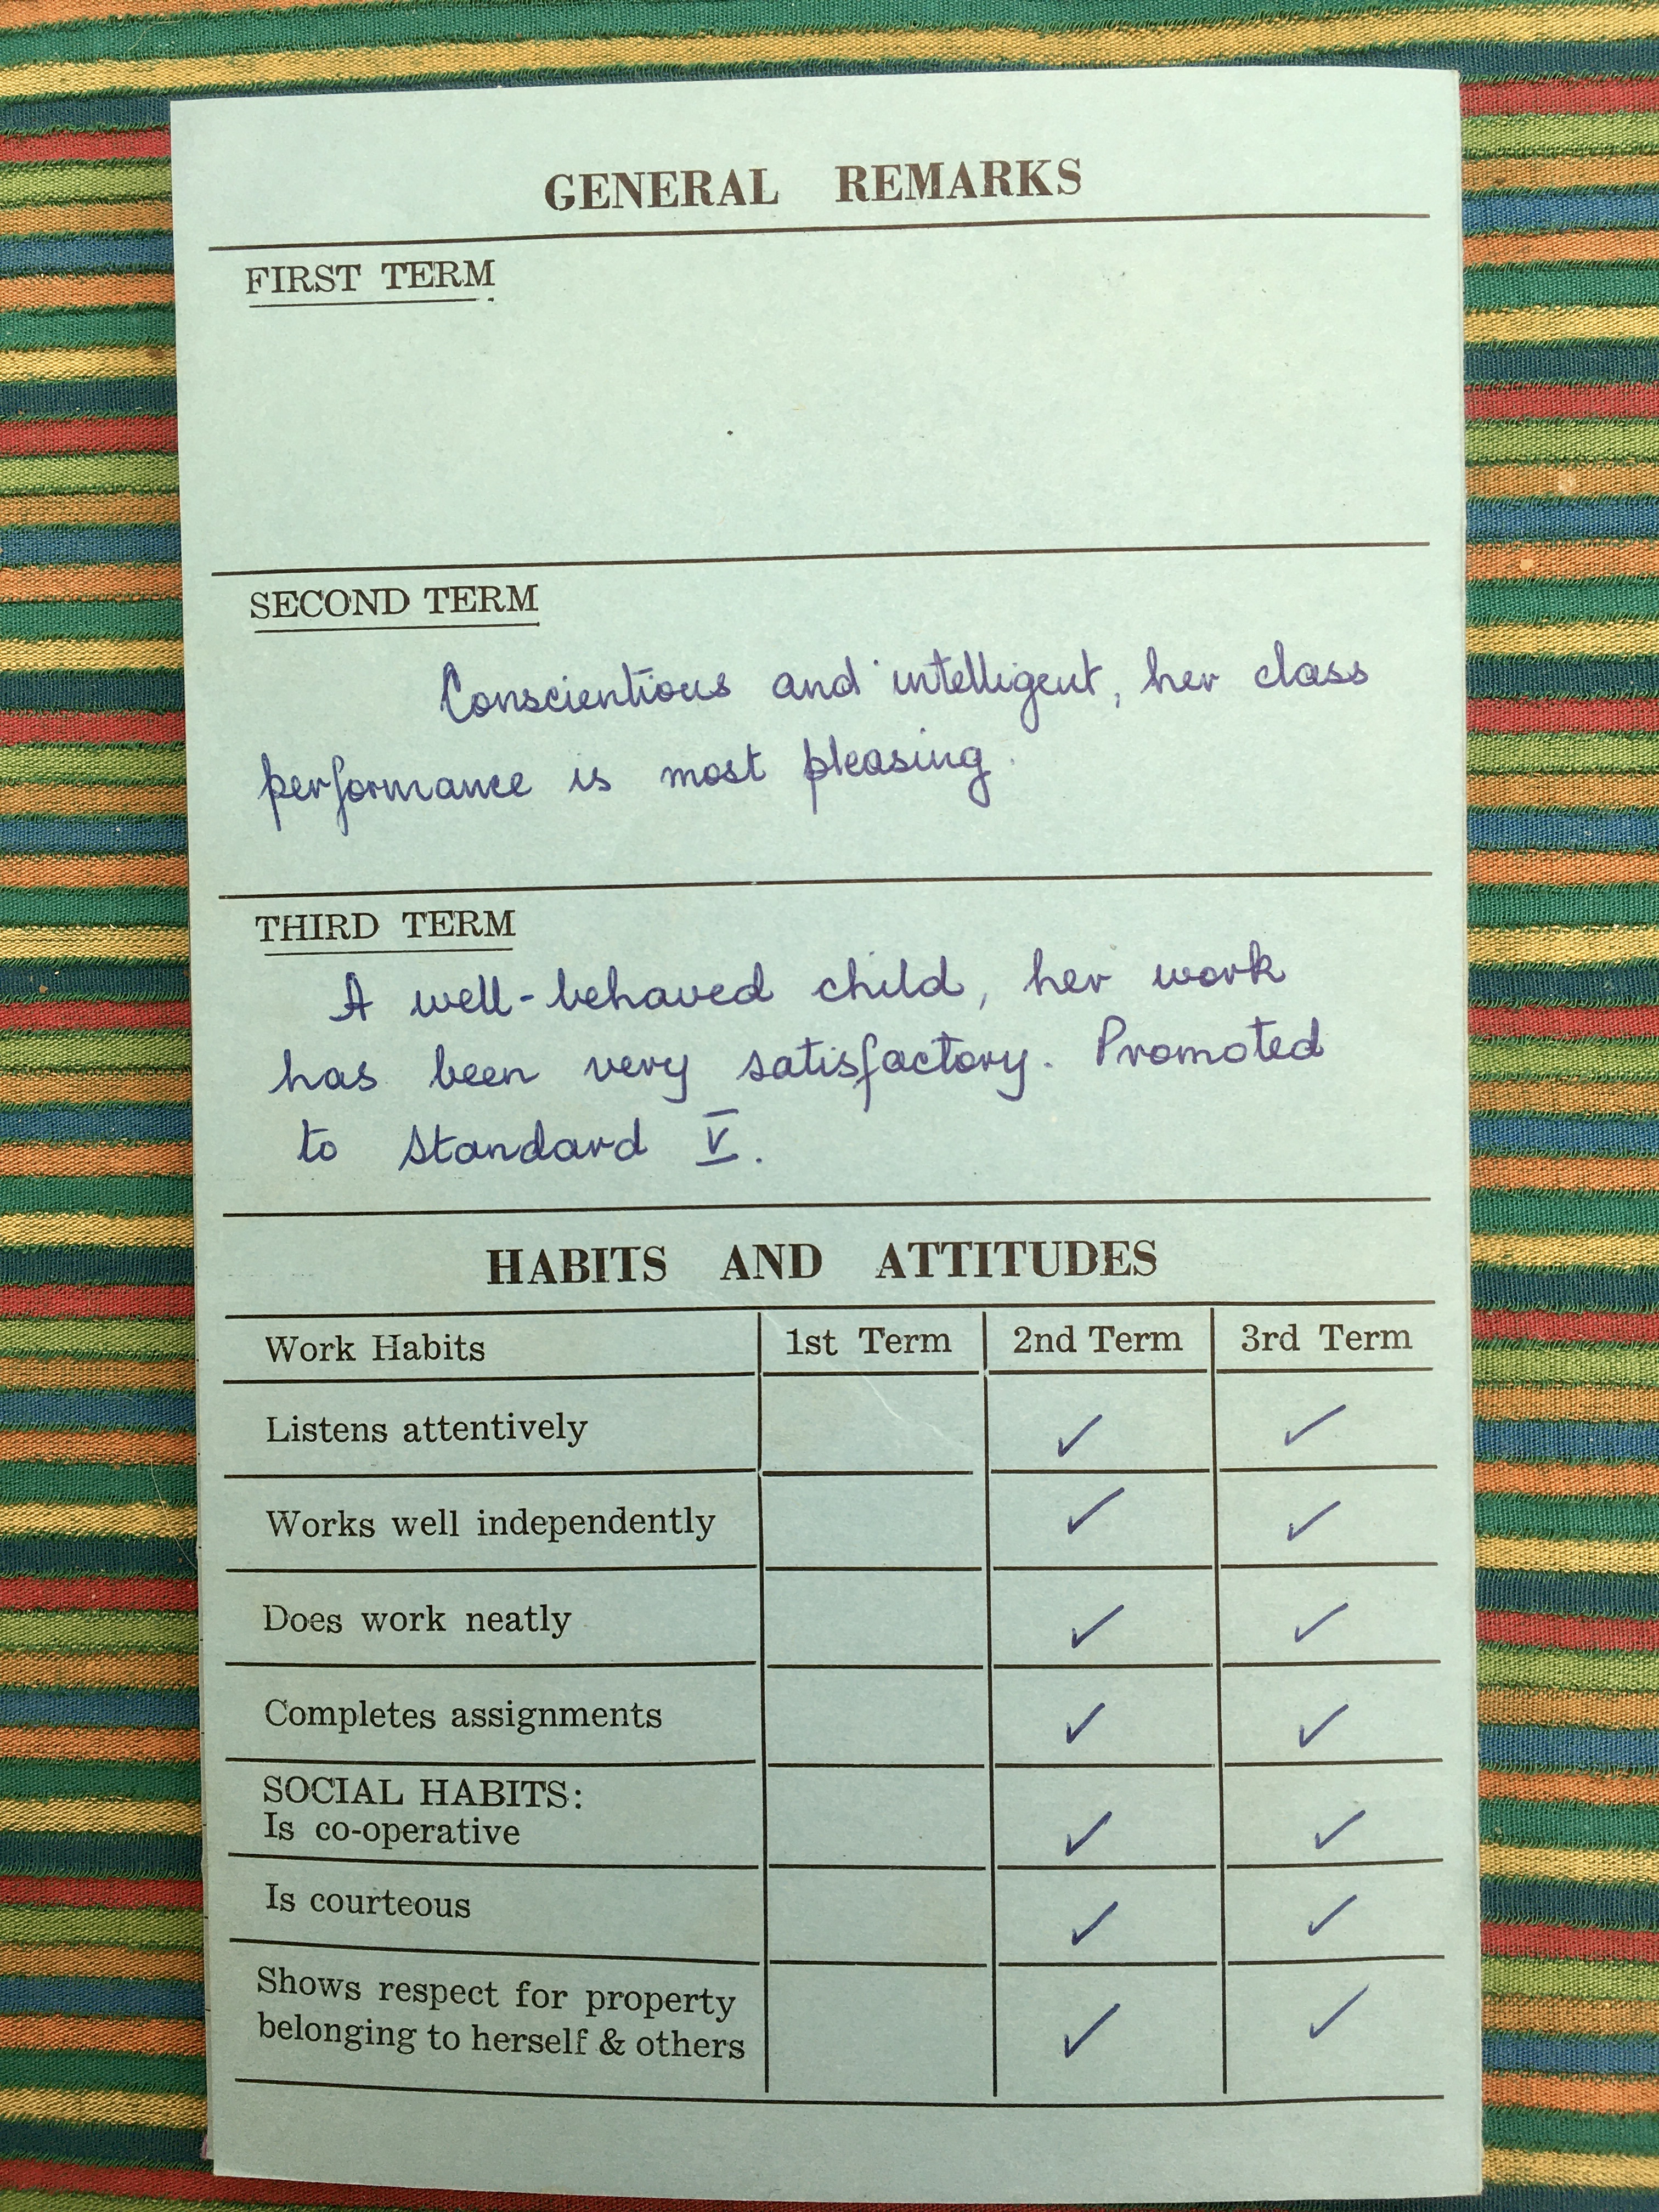 GENERAL REMARKS
FIRST TERM
SECOND TERM
Conscientious and intelligent, her class
performance is most pleasing.
THIRD TERM
A well-behaved child, her work
has been very satisfactory. Promoted
to standard V.
HABITS AND ATTITUDES
Work Habits 1st Term 2nd Term 3rd Term
Listens attentively ✓ ✓
Works well independently ✓ ✓
Does work neatly ✓ ✓
Completes assignments ✓ ✓
SOCIAL HABITS:
Is co-operative ✓ ✓
Is courteous ✓ ✓
Shows respect for property
belonging to herself & others ✓ ✓